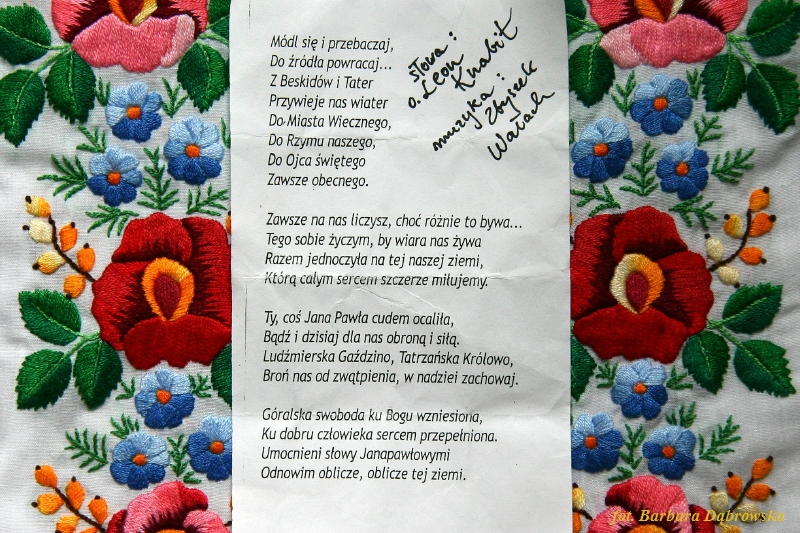 Módl się i przebaczaj,
Do źródła powracaj...
Z Beskidów i Tater
Przywieje nas wiater
Do Miasta Wiecznego,
Do Rzymu naszego,
Do Ojca świętego
Zawsze obecnego.
słowa:
o. Leon
Knabit
muzyka:
Zbyszek
Wałach
Zawsze na nas liczysz, choć różnie to bywa...
Tego sobie życzym, by wiara nas żywa
Razem jednoczyła na tej naszej ziemi,
Którą całym sercem szczerze miłujemy.
Ty, coś Jana Pawła cudem ocaliła,
Bądź i dzisiaj dla nas obroną i siłą.
Ludźmierska Gaździno, Tatrzańska Królowo,
Broń nas od zwątpienia, w nadziei zachowaj.
Góralska swoboda ku Bogu wzniesiona,
Ku dobru człowieka sercem przepełniona.
Umocnieni słowy Janapawłowymi
Odnowim oblicze, oblicze tej ziemi.
fot. Barbara Dąbrowska